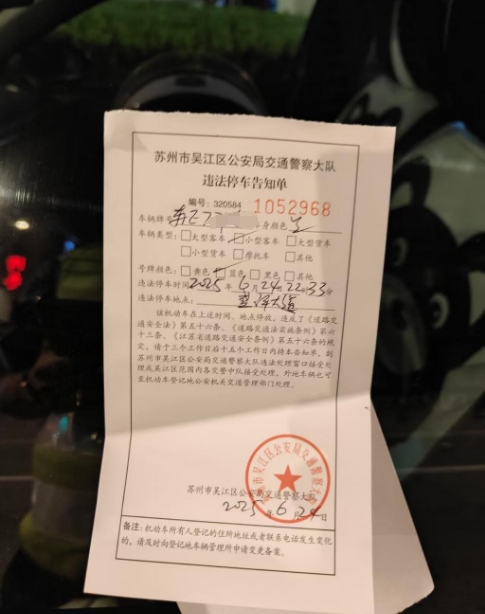 苏州市吴江区公安局交通警察大队
违法停车告知单
编号：320584 1052968
车辆牌号 身颜色
车辆类型：□大型客车 □小型客车 □大型货车
□小型货车 □摩托车 □其他
号牌颜色：□黄色 □蓝色 □黑色 □其他
违法停车时间 2025 年 6 月 24 22 33 分
违法停车地点： 大道
该机动车在上述时间、地点停放，违反了《道路交
通安全法》第五十六条、《道路交通法实施条例》第六
十三条、《江苏省道路交通安全条例》第五十六条的规
定，请于三个工作日后十五个工作日内持本告知单，到
苏州市吴江区公安局交通警察大队违法处理窗口接受处
理或吴江区范围内各交警中队接受处理，外地车辆也可
至机动车登记地公安机关交通管理部门处理。
苏州市吴江区公安局交通警察大队
2025 年 6 月 24 日
备注：机动车所有人登记的住所地址或者联系电话发生变化
的，请及时向登记地车辆管理所申请变更备案。